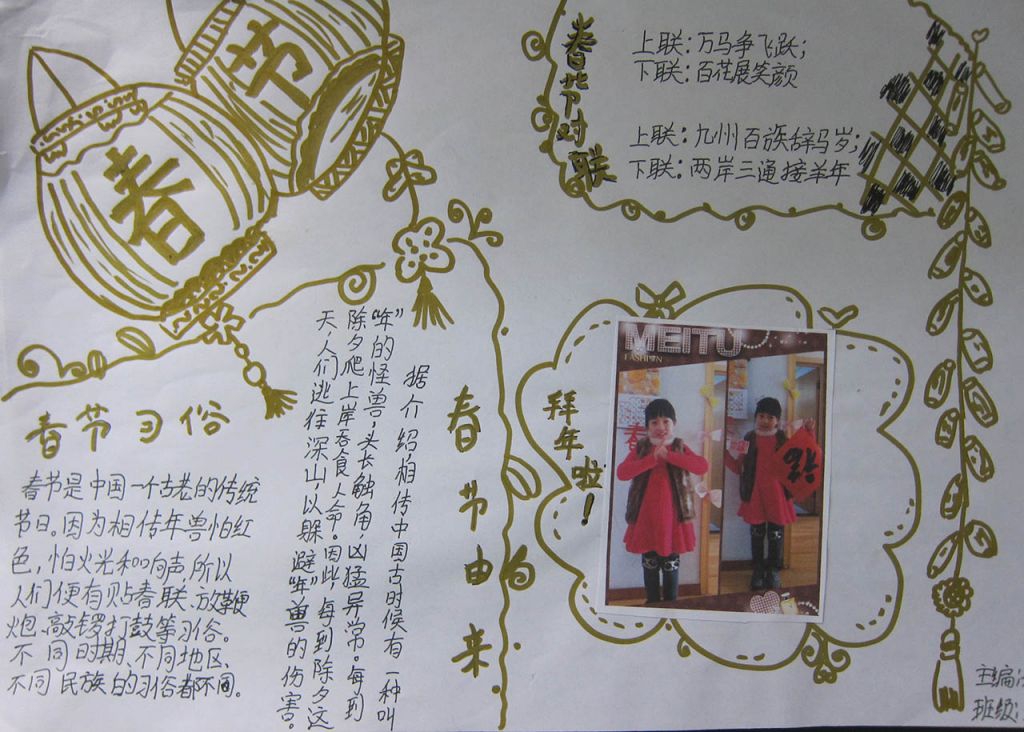 春
节
春节对联
上联：万马争飞跃；
下联：百花展笑颜
上联：九州百族辞马岁；
下联：两岸三通接羊年
春节习俗
春节是中国一个古老的传统
节日。因为相传年兽怕红
色，怕火光和响声，所以
人们便有贴春联、放鞭
炮、敲锣打鼓等习俗。
不同时期、不同地区、
不同民族的习俗都不同。
春节由来
据介绍相传中国古时候有一种叫
“年”的怪兽，头长触角，凶猛异常。每到
除夕爬上岸吞食人命。因此，每到除夕这
天，人们逃往深山，以躲避“年”兽的伤害。
拜年啦！
MEITU
FASHION
春
主编：
班级：